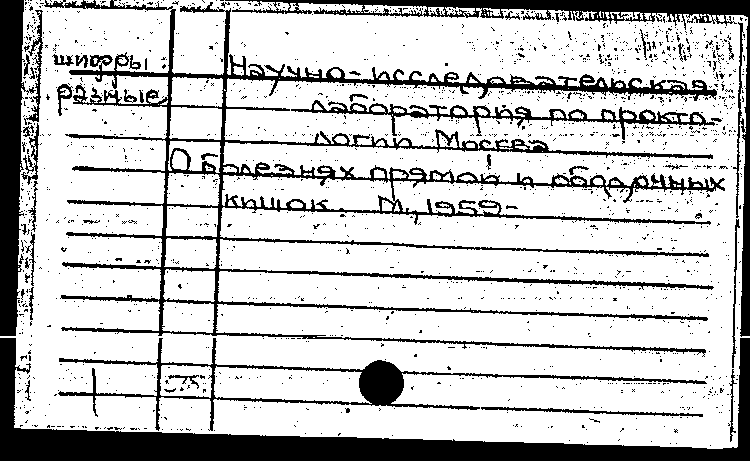 шифры: Научно-исследовательская
разные лаборатория по прокто-
логии Москва
О болезнях прямой и ободочных
кишок. М., 1959-